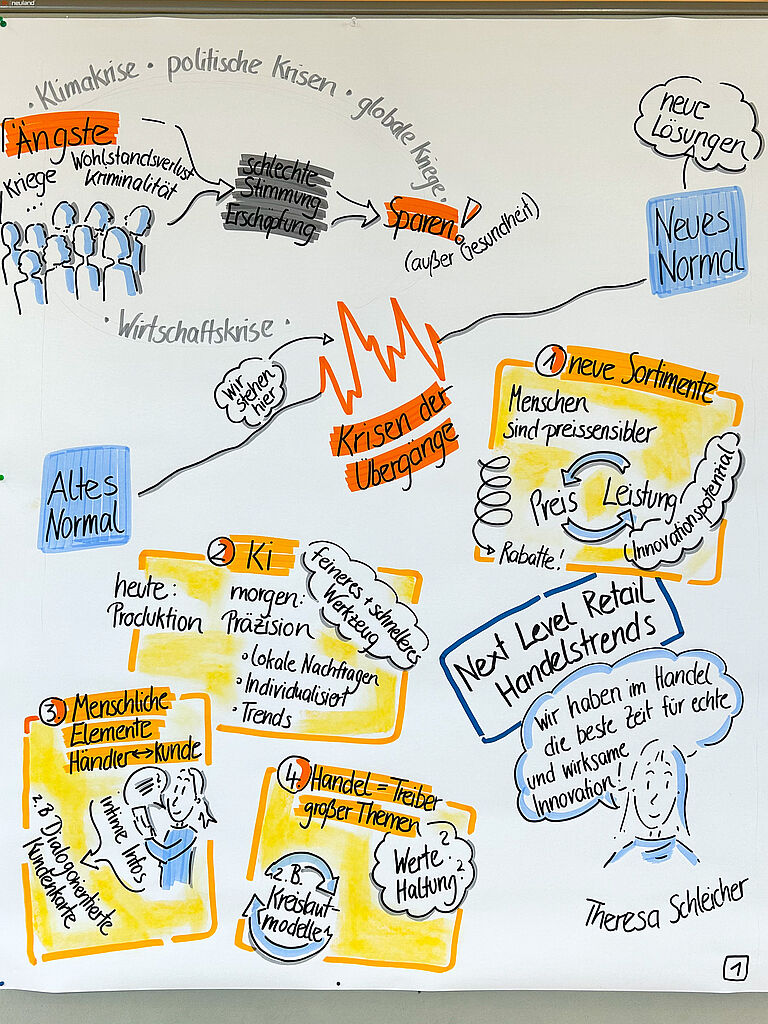 neuland
• Klimakrise • politische Krisen • globale Kriege •
Ängste
Kriege
...
Wohlstandsverlust
Kriminalität
Schlechte
Stimmung
Erschöpfung
Sparen!
(außer Gesundheit)
• Wirtschaftskrise •
neue
Lösungen
Neues
Normal
wir
stehen
hier
Krisen der
Übergänge
Altes
Normal
1 neue Sortimente
Menschen
sind preissensibler
Preis
Leistung
Innovationspotenzial
Rabatte!
2 Ki
heute:
Produktion
morgen:
Präzision
• Lokale Nachfragen
• Individualisiert
• Trends
feineres + schnelleres
Werkzeug
Next Level Retail
Handelstrends
wir haben im Handel
die beste Zeit für echte
und wirksame
Innovation!
Theresa Schleicher
3 Menschliche
Elemente
Händler↔Kunde
intime Infos
z.B Dialogorientierte
Kundenkarte
4. Handel = Treiber
großer Themen
Werte?
Haltung?
z.B.
Kreislauf-
modelle
1